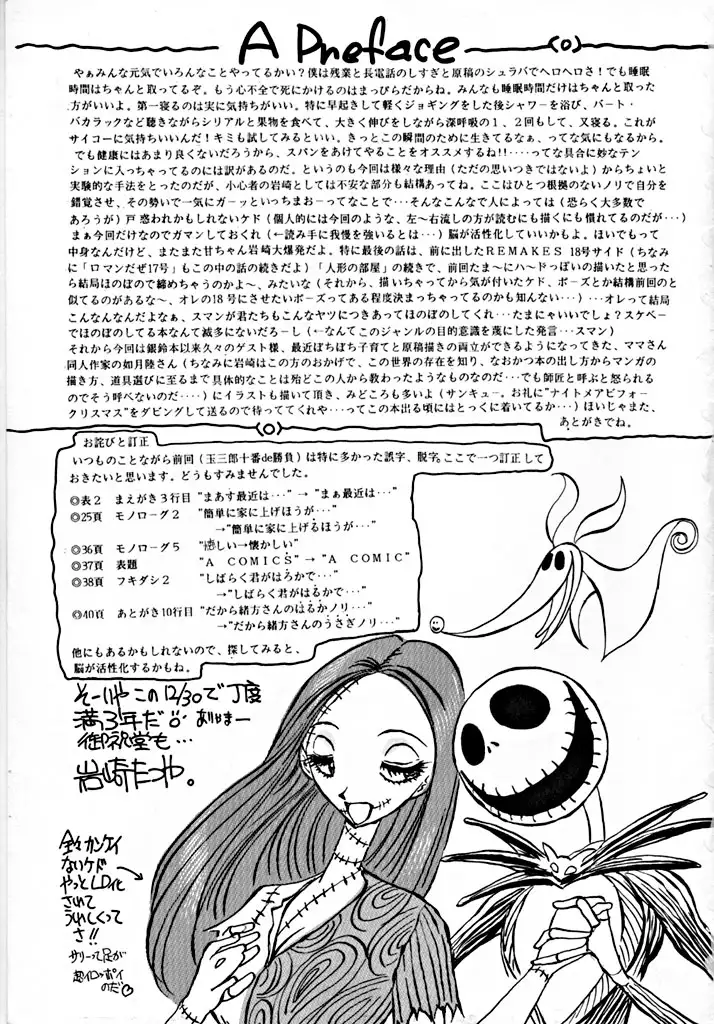 A Preface
(o)
やぁみんな元気でいろんなことやってるかい？僕は残業と長電話のしすぎと原稿のシュラバでヘロヘロさ！でも睡眠
時間はちゃんと取ってるぞ。もう心不全で死にかけるのはまっぴらだからね。みんなも睡眠時間だけはちゃんと取った
方がいいよ。第一寝るのは実に気持ちがいい。特に早起きして軽くジョギングをした後シャワーを浴び、バート・
バカラックなど聴きながらシリアルと果物を食べて、大きく伸びをしながら深呼吸の１、２回もして、又寝る。これが
サイコーに気持ちいいんだ！キミも試してみるといい。きっとこの瞬間のために生きてるなぁ、ってな気にもなるから。
でも健康にはあまり良くないだろうから、スパンをあけてやることをオススメするね!!‥‥ってな具合に妙なテン
ションに入っちゃってるのには訳があるのだ。というのも今回は様々な理由（ただの思いつきではないよ）からちょいと
実験的な手法をとったのだが、小心者の岩崎としては不安な部分も結構あってね。ここはひとつ根拠のないノリで自分を
錯覚させ、その勢いで一気にガーッといっちまおーってなことで‥‥そんなこんなで人によっては（恐らく大多数で
あろうが）戸惑われるかもしれないケド（個人的には今回のような、左〜右流しの方が読むにも描くにも慣れてるのだが‥‥）
まぁ今回だけなのでガマンしておくれ（←読み手に我慢を強いるとは‥‥）脳が活性化していいかもよ。ほいでもって
中身なんだけど、またまた甘ちゃん岩崎大爆発だよ。特に最後の話は、前に出したＲＥＭＡＫＥＳ 18号サイド（ちなみ
に「ロマンだぜ17号」もこの中の話の続きだよ）「人形の部屋」の続きで、前回たま〜にハ〜ドっぽいの描いたと思った
ら結局ほのぼので締めちゃうのかよ〜、みたいな（それから、描いちゃってから気が付いたケド、ポーズとか結構前回のと
似てるのがあるな〜、オレの18号にさせたいポーズってある程度決まっちゃってるのかも知んない‥‥）‥‥オレって結局
こんなんなんだよなぁ、スマンが君たちもこんなヤツにつきあってほのぼのしてくれ‥‥たまにゃいいでしょ？スケベー
でほのぼのしてる本なんて滅多にないだろーし（←なんてこのジャンルの目的意識を蔑にした発言‥‥スマン）
それから今回は銀鈴本以来久々のゲスト様、最近ぼちぼち子育てと原稿描きの両立ができるようになってきた、ママさん
同人作家の如月陸さん（ちなみに岩崎はこの方のおかげで、この世界の存在を知り、なおかつ本の出し方からマンガの
描き方、道具選びに至るまで具体的なことは殆どこの人から教わったようなものなのだ‥‥でも師匠と呼ぶと怒られる
のでそう呼べないのだ‥‥）にイラストも描いて頂き、みどころも多いよ（サンキュー。お礼に”ナイトメアビフォー
クリスマス”をダビングして送るので待っててくれや‥‥ってこの本出る頃にはとっくに着いてるか‥‥）ほいじゃまた、
あとがきでね。
(o)
お詫びと訂正
いつものことながら前回（玉三郎十番de勝負）は特に多かった誤字、脱字。ここで一つ訂正して
おきたいと思います。どうもすみませんでした。
◎表２　まえがき３行目 ”まあす最近は‥‥” → ”まぁ最近は‥‥”
◎25頁　モノローグ２　”簡単に家に上げほうが‥‥”
→”簡単に家に上げるほうが‥‥”
◎36頁　モノローグ５　”→懐かしい”
◎37頁　表題　”Ａ ＣＯＭＩＣＳ”→”Ａ ＣＯＭＩＣ”
◎38頁　フキダシ２　”しばらく君がはろかで‥‥”
→”しばらく君がはるかで‥‥”
◎40頁　あとがき10行目 ”だから緒方さんのはるかノリ‥‥”
→”だから緒方さんのうさぎノリ‥‥”
他にもあるかもしれないので、探してみると、
脳が活性化するかもね。
そーいやこの12/30で丁度
満3年だ。おりまー
御祝堂も…
岩崎たつや。
全々カンケイ
ないケド
やっとLD化
されて
うれしくって
さ!!
サリーって足が
超イロッポイ
のだ♡